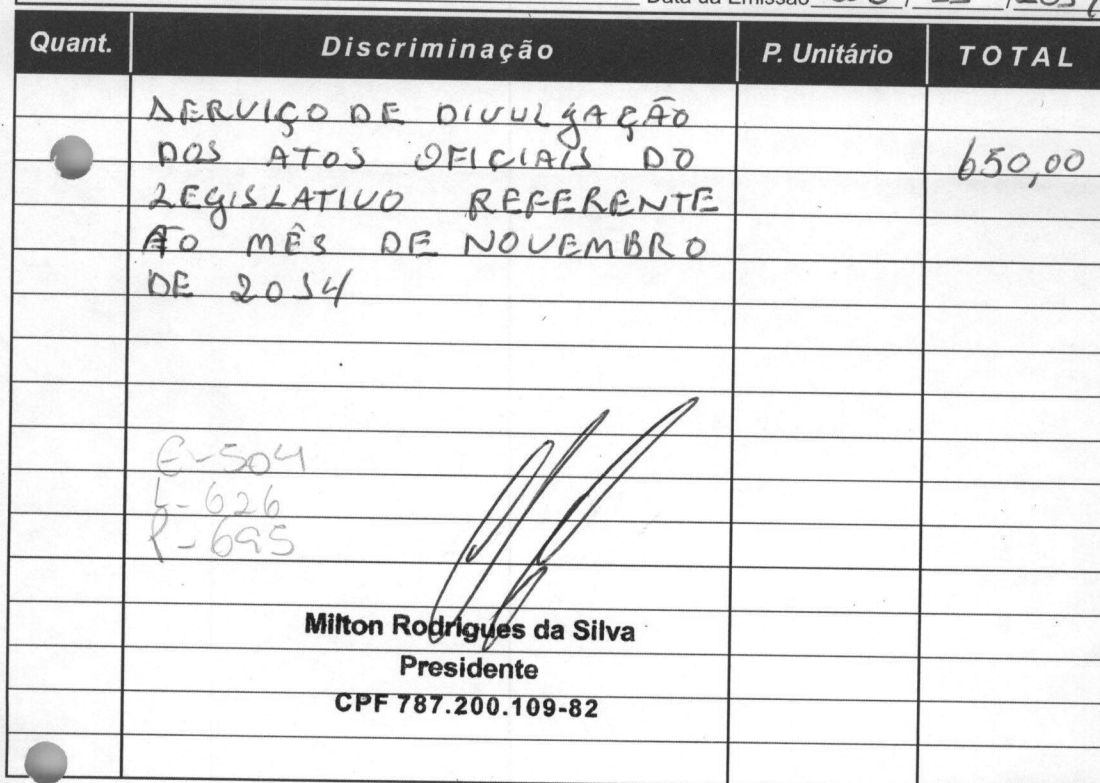 Data da Emissão / 11 / 2014
Quant. Discriminação P. Unitário TOTAL
SERVIÇO DE DIVULGAÇÃO
DOS ATOS OFICIAIS DO 650,00
LEGISLATIVO REFERENTE
AO MÊS DE NOVEMBRO
DE 2014
E-504
L-626
P-695
Milton Rodrigues da Silva
Presidente
CPF 787.200.109-82